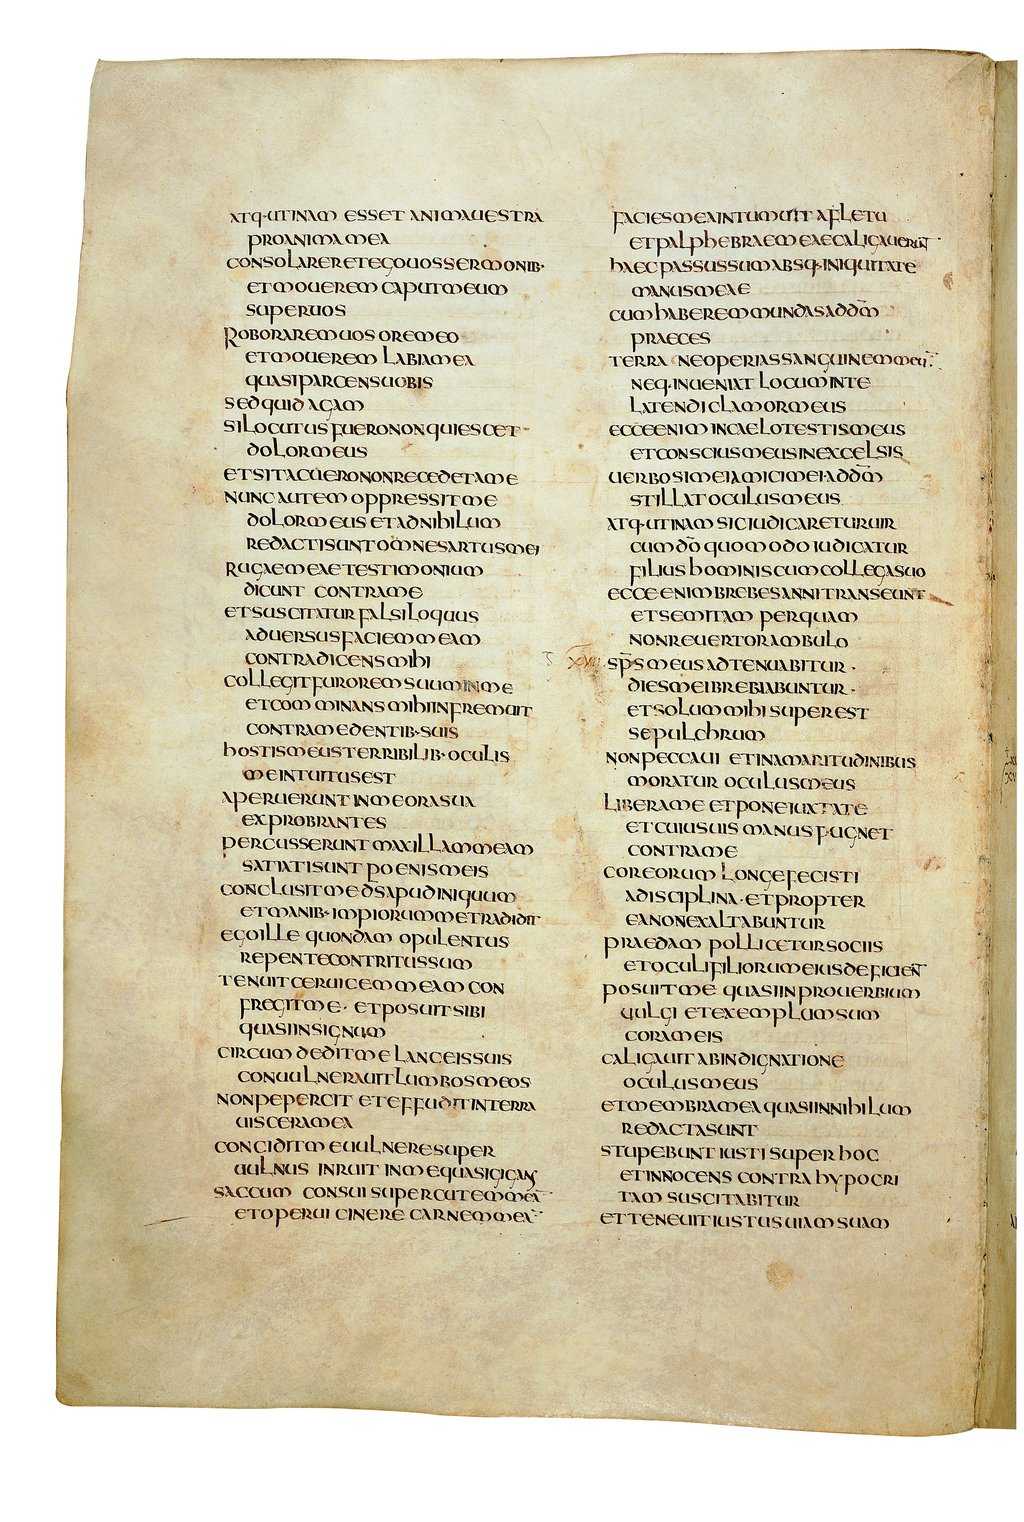 ATQ·UTINAM ESSET ANIMAUESTRA
PROANIMAMEA
CONSOLARERETEGOUOSSERMONIB·
ETMOUEREM CAPUTMEUM
SUPERUOS
ROBORAREMUOS OREMEO
ETMOUEREM LABIAMEA
QUASIPARCENSUOBIS
SEDQUIDAGAM
SILOCUTUSFUERONONQUIESCET
DOLORMEUS
ETSITACUERONONRECEDETAME
NUNCAUTEMOPPRESSITME
DOLORMEUS ETADNIHILUM
REDACTISUNTOMNESARTUSMEI
RUGAEMEAETESTIMONIUM
DICUNT CONTRAME
ETSUSCITATURFALSILOQUUS
ADUERSUSFACIEMMEAM
CONTRADICENSMIHI
COLLEGITFUROREMSUUMINME
ETCOMMINANSMIHIINFREMUIT
CONTRAMEDENTIB·SUIS
HOSTISMEUSTERRIBILIB·OCULIS
MEINTUITUSEST
APERUERUNTINMEORASUA
EXPROBRANTES
PERCUSSERUNTMAXILLAMMEAM
SATIATISUNT POENISMEIS
CONCLUSITMEDSAPUDINIQUUM
ETMANIB·IMPIORUMMETRADIDIT
EGOILLE QUONDAM OPULENTUS
REPENTECONTRITUSSUM
TENUITCERUICEMMEAM CON
FREGITME· ETPOSUITSIBI
QUASIINSIGNUM
CIRCUMDEDITME LANCEISSUIS
CONUULNERAUITLUMBOSMEOS
NONPEPERCIT ETEFFUDITINTERRA
UISCERAMEA
CONCIDITMEUULNERESUPER
UULNUS INRUIT INMEQUASIGIGANS
SACCUM CONSUISUPERCUTEMMEA
ETOPERUI CINERE CARNEMMEA
FACIESMEAINTUMUIT AFLETU
ETPALPHEBRAEMEAECALIGAUERUNT
HAECPASSUSSUMABSQ·INIQUITATE
MANUSMEAE
CUMHABEREMMUNDASADDM̄
PRAECES
TERRA NEOPERIASSANGUINEMMEU
NEQ·INUENIAT LOCUMINTE
LATENDICLAMORMEUS
ECCEENIMINCAELOTESTISMEUS
ETCONSCIUSMEUSINEXCELSIS
UERBOSIMEIAMICIMEI·ADDM̄
STILLATOCULUSMEUS
ATQ·UTINAMSICIUDICARETURUIR
CUMDŌ QUOMODOIUDICATUR
FILIUSHOMINISCUMCOLLEGASUO
ECCEENIMBREBESANNITRANSEUNT
ETSEMITAM PERQUAM
NONREUERTORAMBULO
XVII SP̄SMEUSADTENUABITUR·
DIESMEIBREBIABUNTUR·
ETSOLUMMIHISUPEREST
SEPULCHRUM
NONPECCAUI ETINAMARITUDINIBUS
MORATUR OCULUSMEUS
LIBERAME ETPONEIUXTATE
ETCUIUSUIS MANUSPUGNET
CONTRAME
COREORUM LONGEFECISTI
ADISCIPLINA·ETPROPTER
EANONEXALTABUNTUR
PRAEDAM POLLICETURSOCIIS
ETOCULIFILIORUMEIUSDEFICIENT
POSUITME QUASIINPROUERBIUM
UULGI ETEXEMPLUMSUM
CORAMEIS
CALIGAUITABINDIGNATIONE
OCULUSMEUS
ETMEMBRAMEAQUASIINNIHILUM
REDACTASUNT
STUPEBUNTIUSTISUPERHOC
ETINNOCENS CONTRAHYPOCRI
TAM SUSCITABITUR
ETTENEUITIUSTUSUIAMSUAM